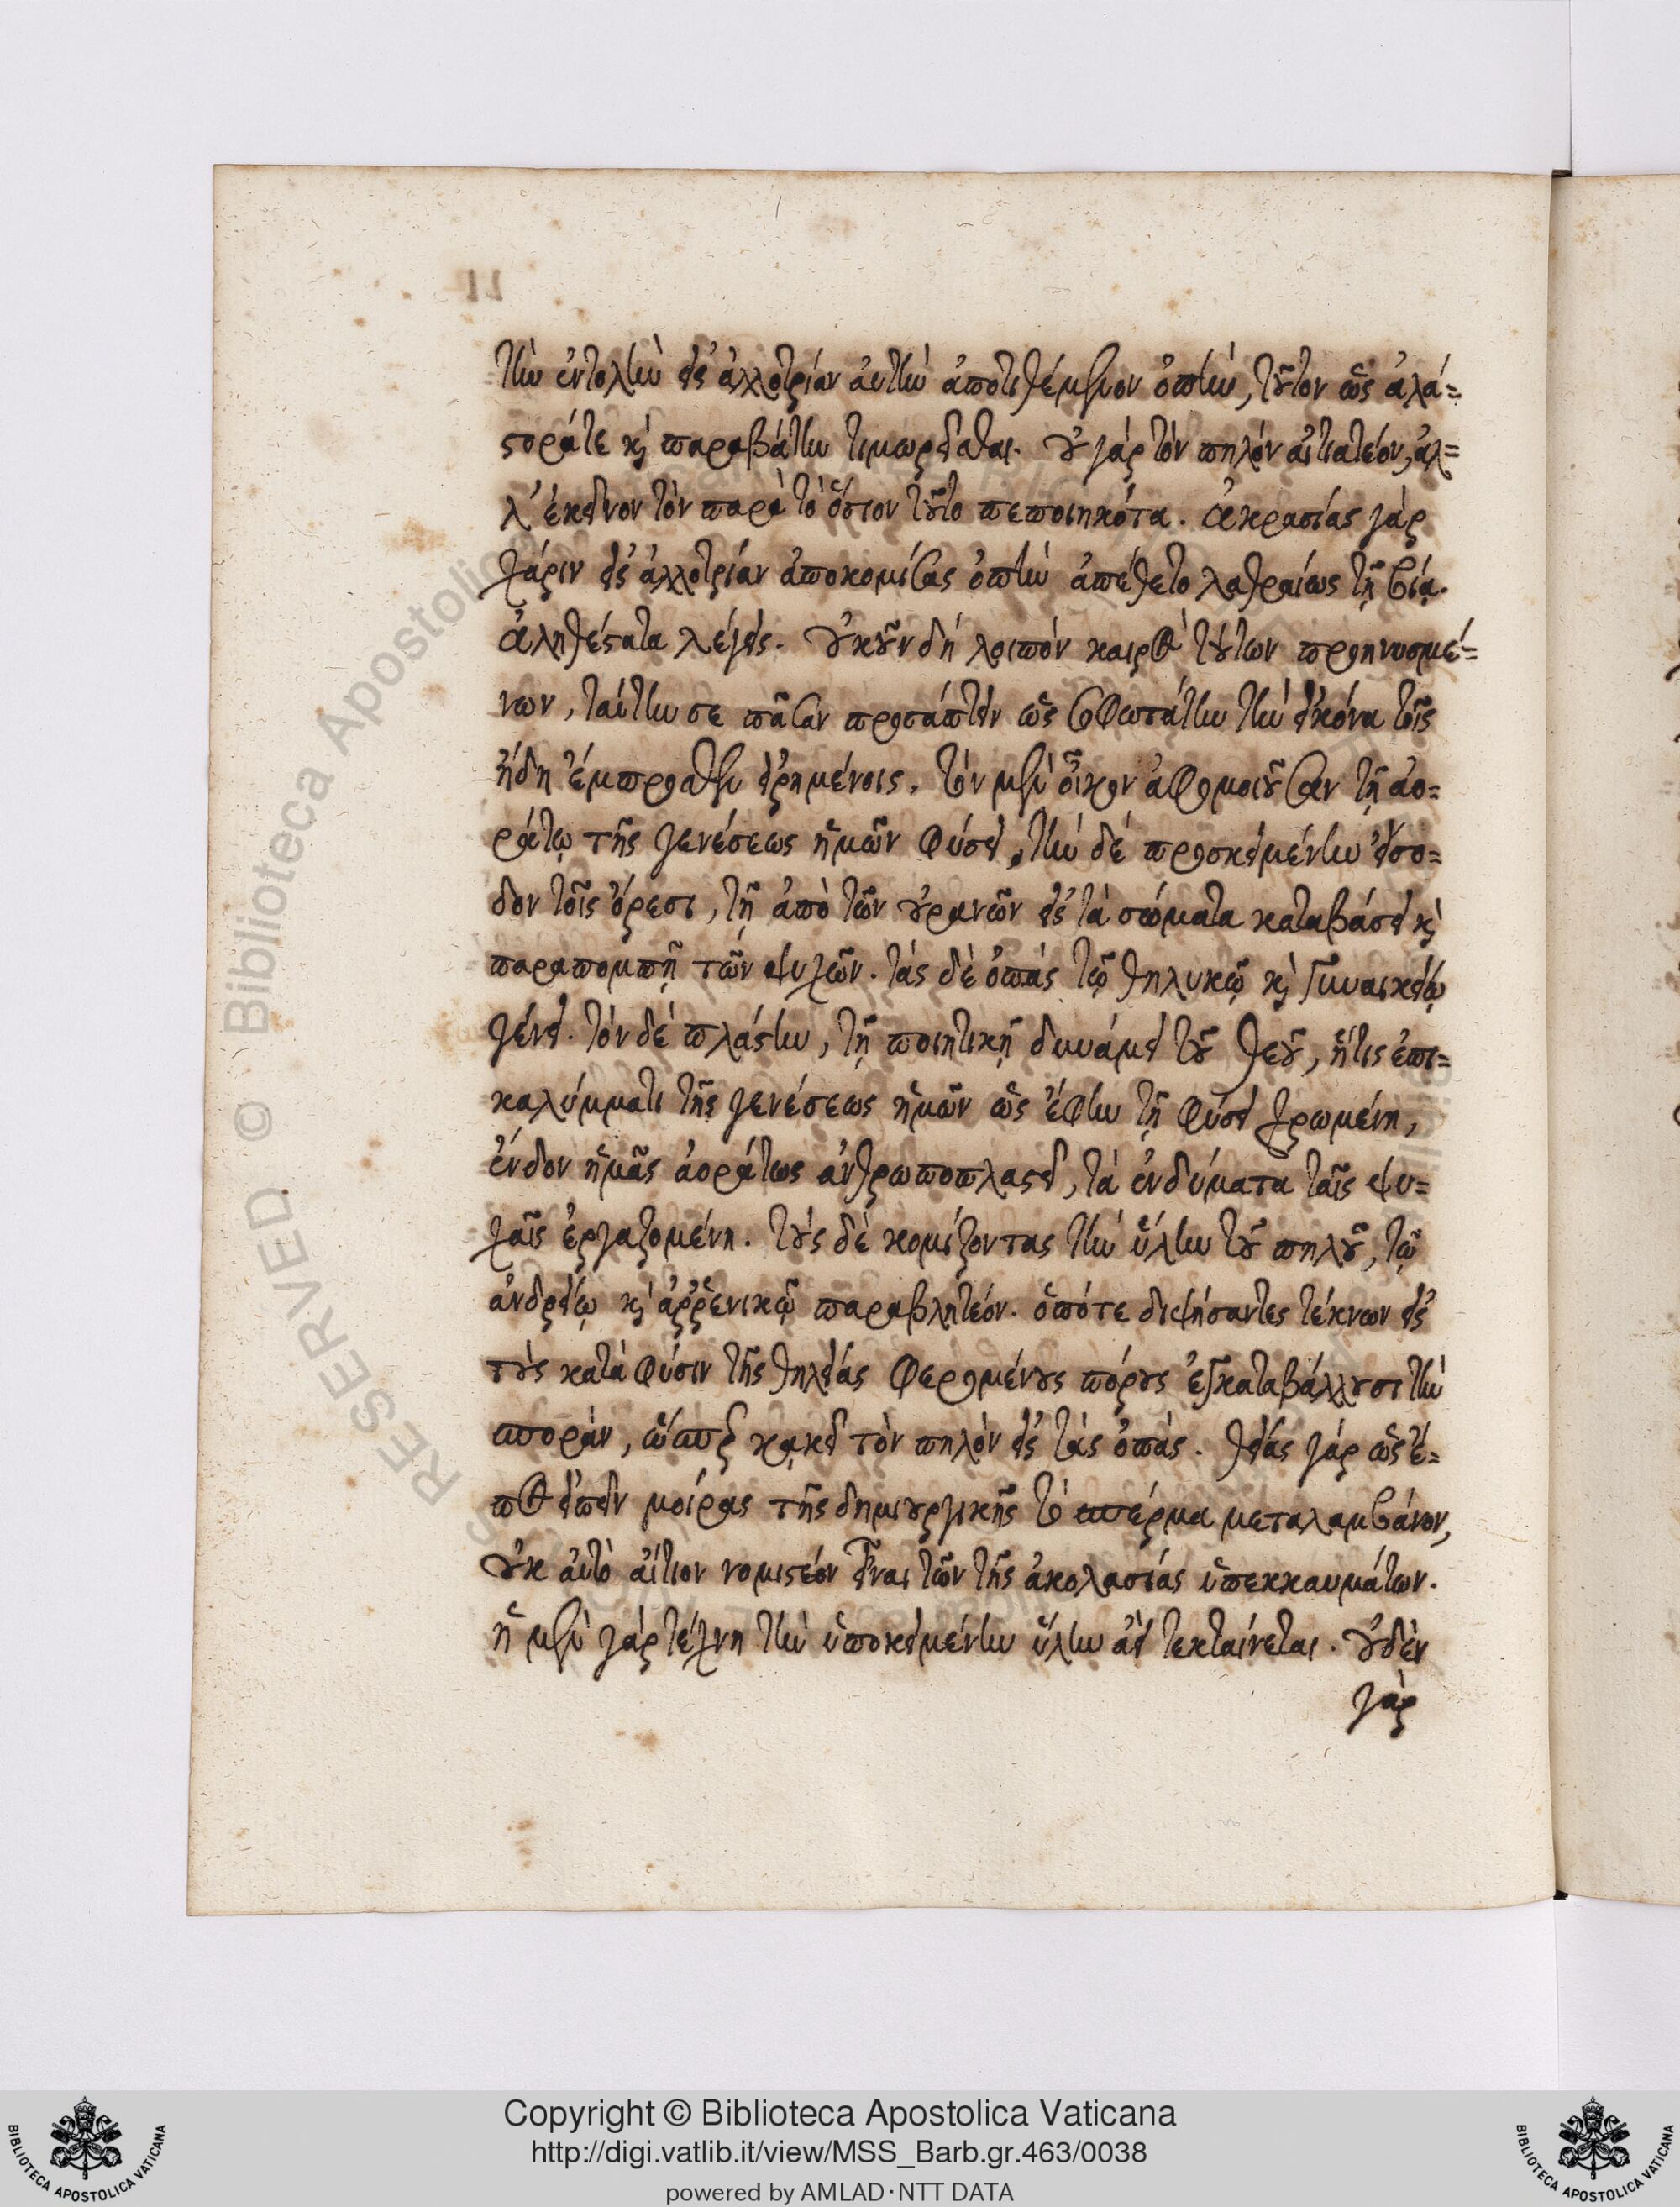 τὴν ἐντολὴν εἰς ἀλλοτρίαν αὐτὴν ἀποτιθέμενον ὀπὴν, τοῦτον ὡς ἀλά-
στορά τε καὶ παραβάτην τιμωρεῖσθαι. οὐ γάρ τὸν πηλὸν αἰτιατέον, ἀλ-
λ' ἐκεῖνον τὸν παρὰ τὸ ὅσιον τοῦτο πεποιηκότα. ἀκρασίας γὰρ
χάριν εἰς ἀλλοτρίαν ἀποκομίσας ὀπὴν ἀπέθετο λαθραίως τῇ βίᾳ.
ἀληθέστατα λέγεις. οὐκοῦν δή λοιπόν καιρὸς τούτων προηνυσμέ-
νων, ταύτην σε πᾶσαν προσάπτειν ὡς σοφωτάτην τὴν εἰκόνα τοῖς
ἤδη ἔμπροσθεν εἰρημένοις. τὸν μὲν οἶκον ἀφομοιοῦσαν τῇ ἀο-
ράτῳ τῆς γενέσεως ἡμῶν φύσει, τὴν δὲ προσκειμένην εἴσο-
δον τοῖς ὄρεσι, τῇ ἀπὸ τῶν οὐρανῶν εἰς τὰ σώματα καταβάσει καὶ
παραπομπῇ τῶν ψυχῶν. τὰς δὲ ὀπὰς τῷ θηλυκῷ καὶ γυναικείῳ
γένει. τὸν δὲ πλάστην, τῇ ποιητικῇ δυνάμει τοῦ θεοῦ, ἥτις ἐπι-
καλύμματι τῆς γενέσεως ἡμῶν ὡς ἔφην τῇ φύσει χρωμένη,
ἔνδον ἡμᾶς ἀοράτως ἀνθρωποπλαστεῖ, τὰ ἐνδύματα ταῖς ψυ-
χαῖς ἐργαζομένη. τοὺς δὲ κομίζοντας τὴν ὕλην τοῦ πηλοῦ, τῷ
ἀνδρείῳ καὶ ἀῤῥενικῷ παραβλητέον. ὁπότε διψήσαντες τέκνων εἰς
τοὺς κατὰ φύσιν τῆς θηλείας φερομένους πόρους ἐγκαταβάλλουσι τὴν
σποράν, ὥσπερ κἀκεῖ τὸν πηλὸν εἰς τὰς ὀπάς. θείας γάρ ὡς ἔ-
πος εἰπεῖν μοίρας τῆς δημιουργικῆς τὸ σπέρμα μεταλαμβάνον,
οὐκ αὐτὸ αἴτιον νομιστέον εἶναι τῶν τῆς ἀκολασίας ὑπεκκαυμάτων.
ἡ μὲν γάρ τέχνη τὴν ὑποκειμένην ὕλην ἀεὶ τεκταίνεται. οὐδὲν
γὰρ
11
RESERVED © Biblioteca Apostolica
BIBLIOTECA APOSTOLICA VATICANA
Copyright © Biblioteca Apostolica Vaticana
http://digi.vatlib.it/view/MSS_Barb.gr.463/0038
powered by AMLAD·NTT DATA
BIBLIOTECA APOSTOLICA VATICANA